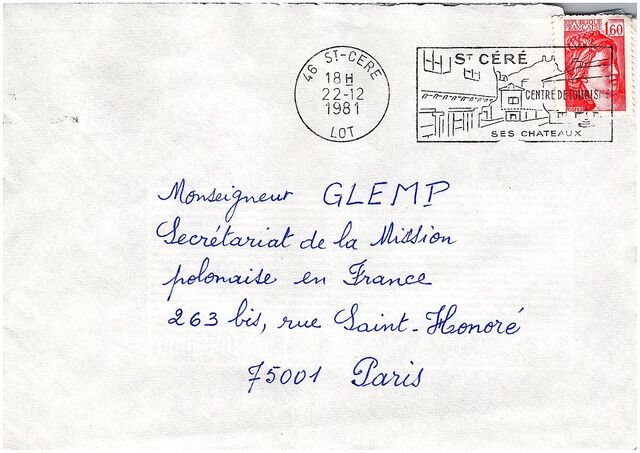 46 ST-CERE
18 H
22-12
1981
LOT
ST CÉRÉ
CENTRE DE TOURIS
SES CHATEAUX
REPUBLIQUE
FRANCAISE
1,60
Monseigneur GLEMP
Secrétariat de la Mission
polonaise en France
263 bis, rue Saint-Honoré
75001 Paris